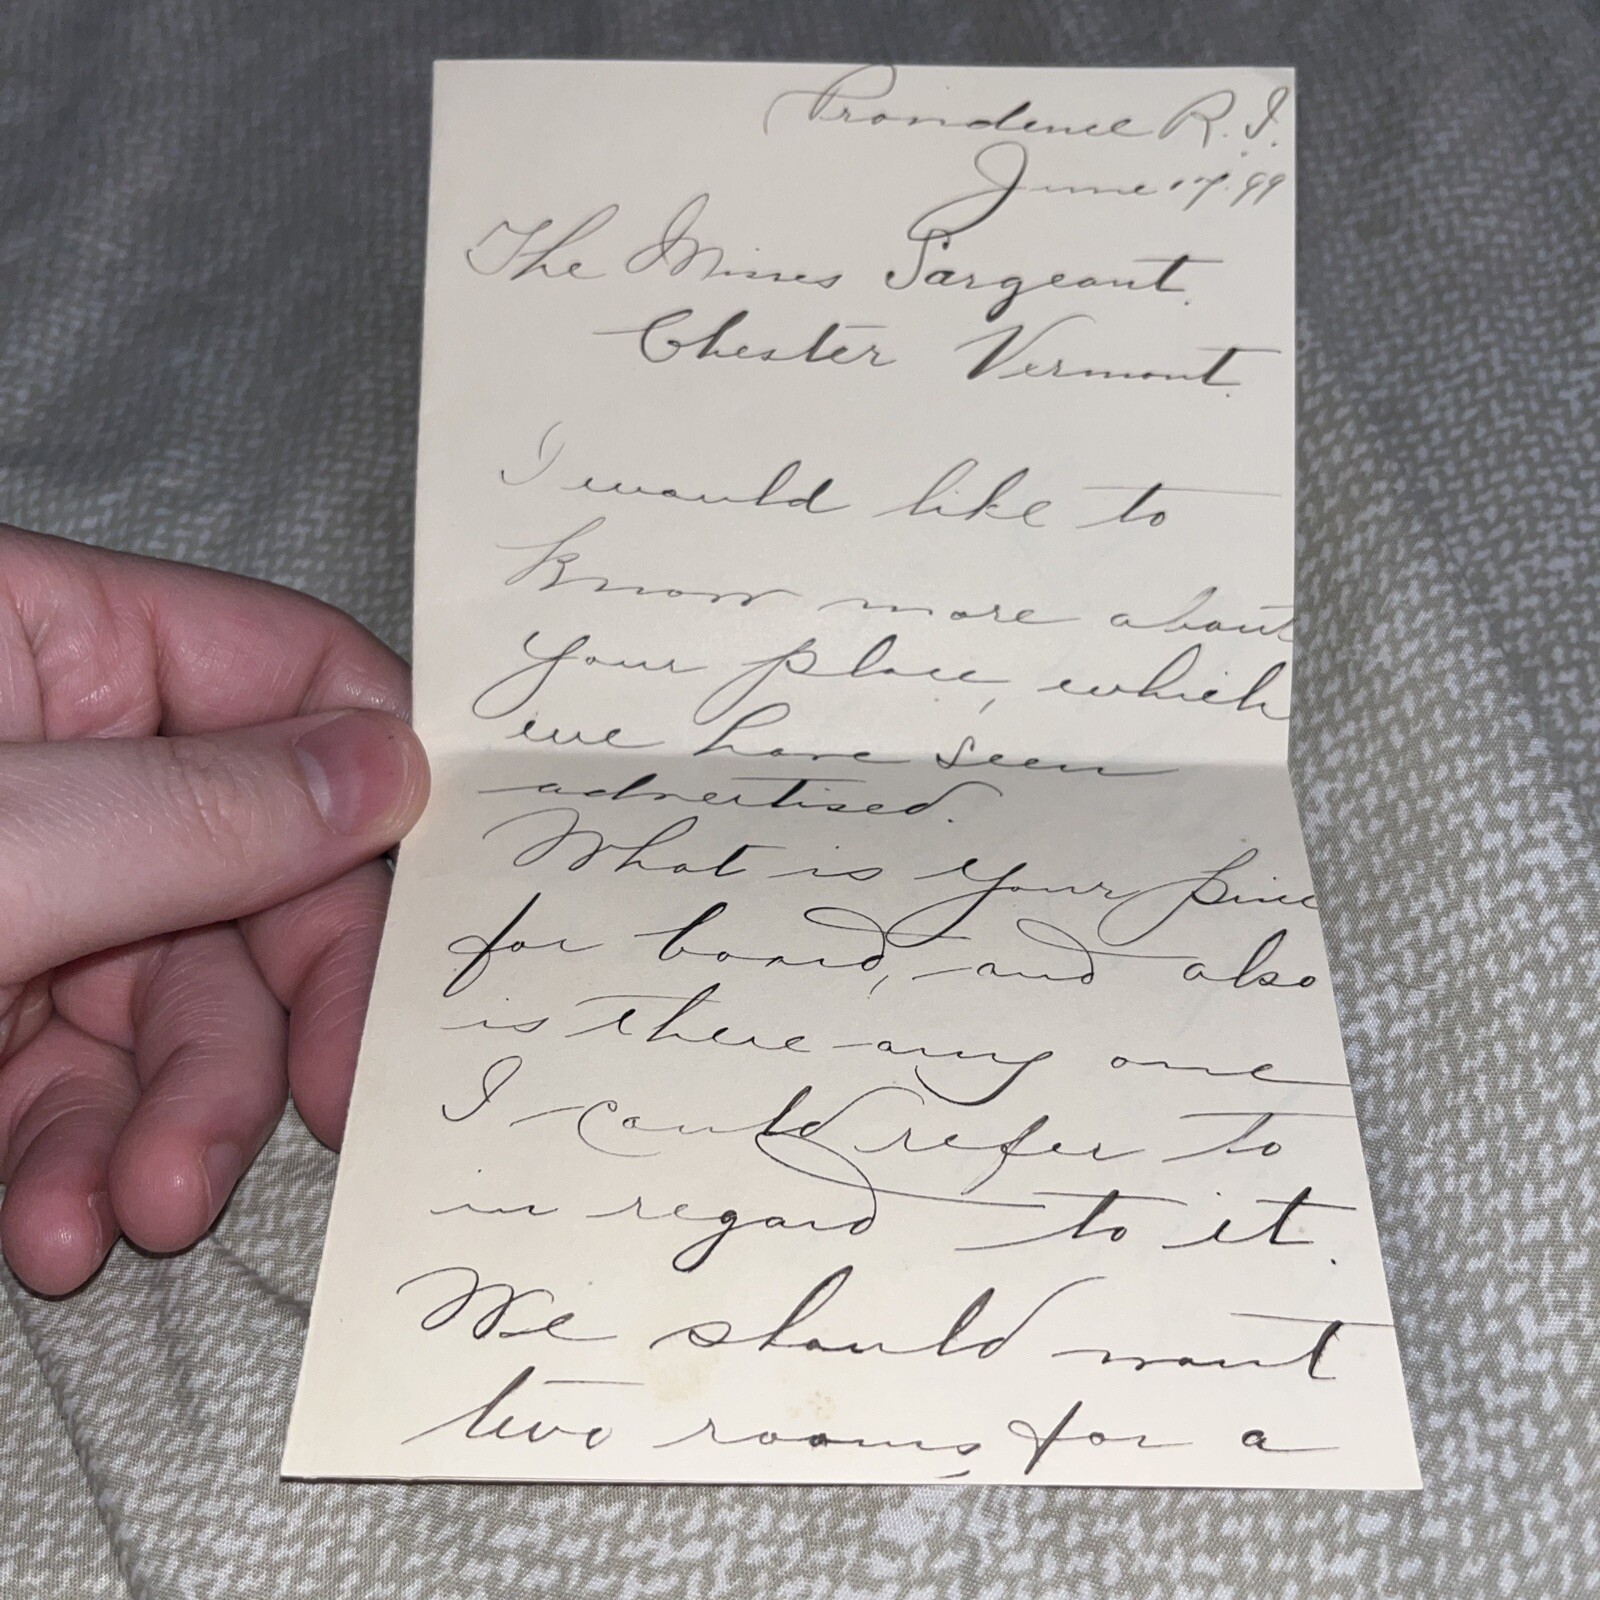 Providence R.I.
June 17. 99
The Misses Sargeant.
Chester Vermont.
I would like to
know more about
your place, which
we have seen
advertised.
What is your price
for board, and also
is there any one
I could refer to
in regard to it.
We should want
two rooms, for a